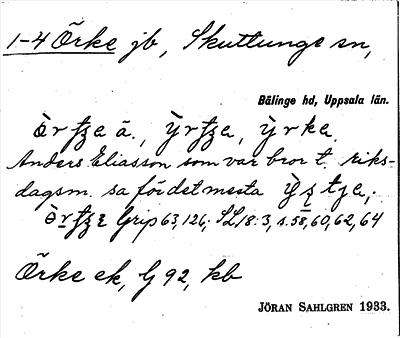 1-4 Örke jb, Skuttunge sn,
Bälinge hd, Uppsala län.
ä.,
Anders Eliasson som var bror t. riks-
dagsm. sa för det mesta
Grip 63, 126; SL 18:3, s. 58, 60, 62, 64
Örke ek, G 92, kb
JÖRAN SAHLGREN 1933.